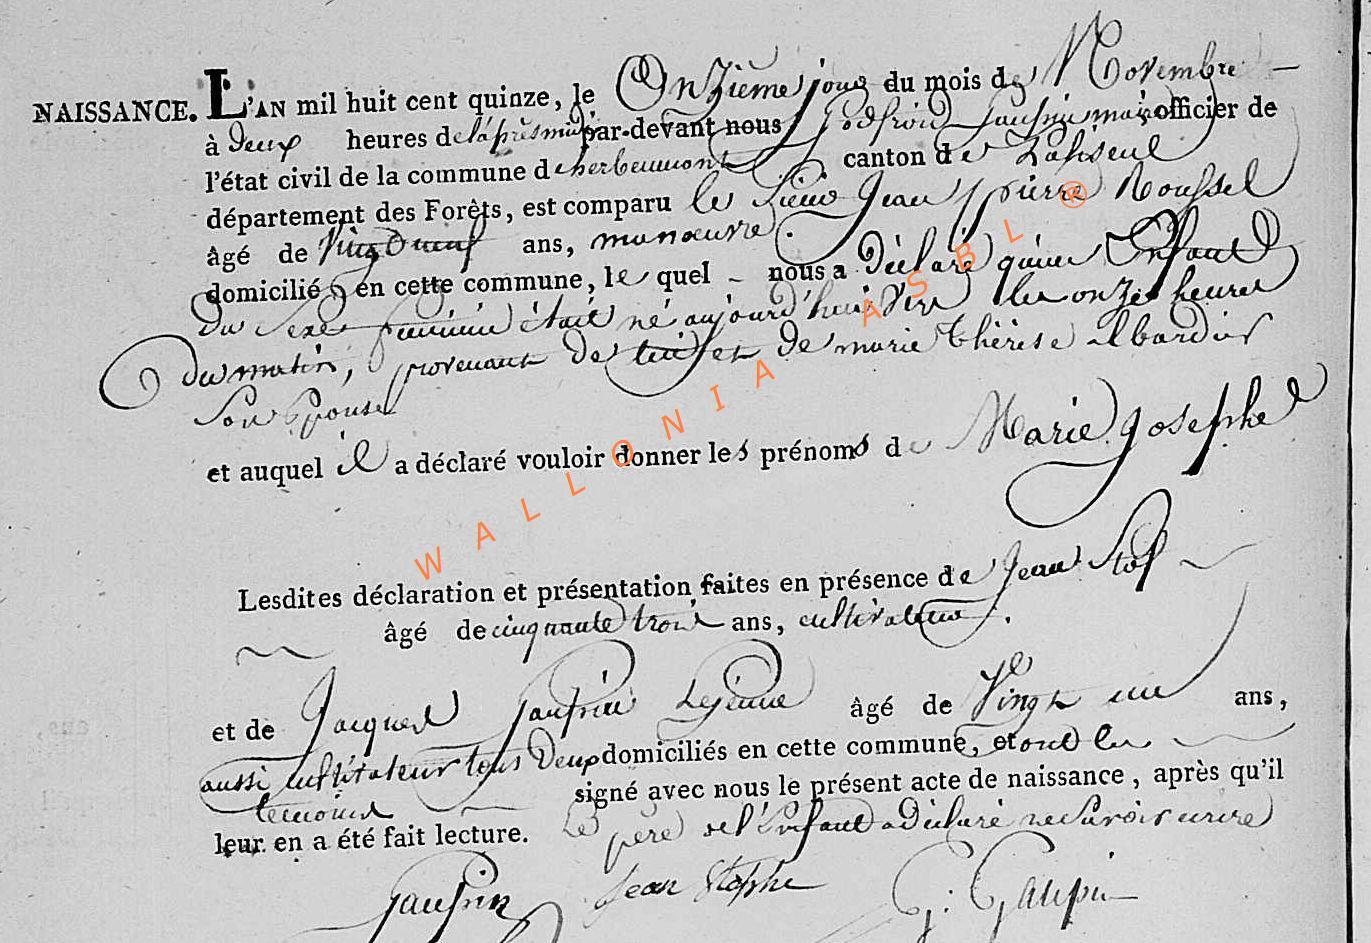 NAISSANCE. L'AN mil huit cent quinze, le Onzieme jour du mois de Novembre
à deux heures de l'après midi par-devant nous Godfroid Jaupin maire officier de
l'état civil de la commune de herbeumont canton de Paliseul
département des Forêts, est comparu le Sieur Jean pierre Roussel
âgé de Vingt neuf ans, manœuvre.
domicilié en cette commune, le quel nous a déclaré qu'un Enfant
du Sexe feminin était né aujourd'hui vers les onze heures
du matin, provenant de lui et de marie thérèse
Son Epouse
et auquel il a déclaré vouloir donner les prénoms de Marie Josephe
Lesdites déclaration et présentation faites en présence de Jean
âgé de cinquante trois ans, cultivateur.
et de Jacques Jaupin Lejeune âgé de Vingt un ans,
aussi cultivateur tous deux domiciliés en cette commune, et ont les
temoins signé avec nous le présent acte de naissance, après qu'il
leur en a été fait lecture. Le père de l'Enfant a déclaré ne savoir ecrire
Jaupin Jean Stophe G: Gaupin
WALLONIA ASBL ®